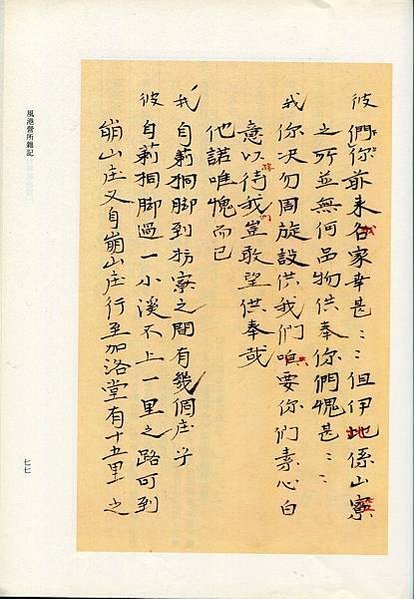 彼 們你爺来吾家幸甚〻〻但伊地係山寮
之所並無何品物供奉你們愧甚〻〻
我 你決勿周旋設供我們咱要你们素心白
意以待我豈敢望供奉哉
他諾唯愧而已
我 自莿桐脚到枋寮之間有幾個庄子
彼 自莿桐脚過一小溪不上一里之路可到
崩山庄又自崩山庄行至加洛堂有十五里之
風港營所雜記
七七